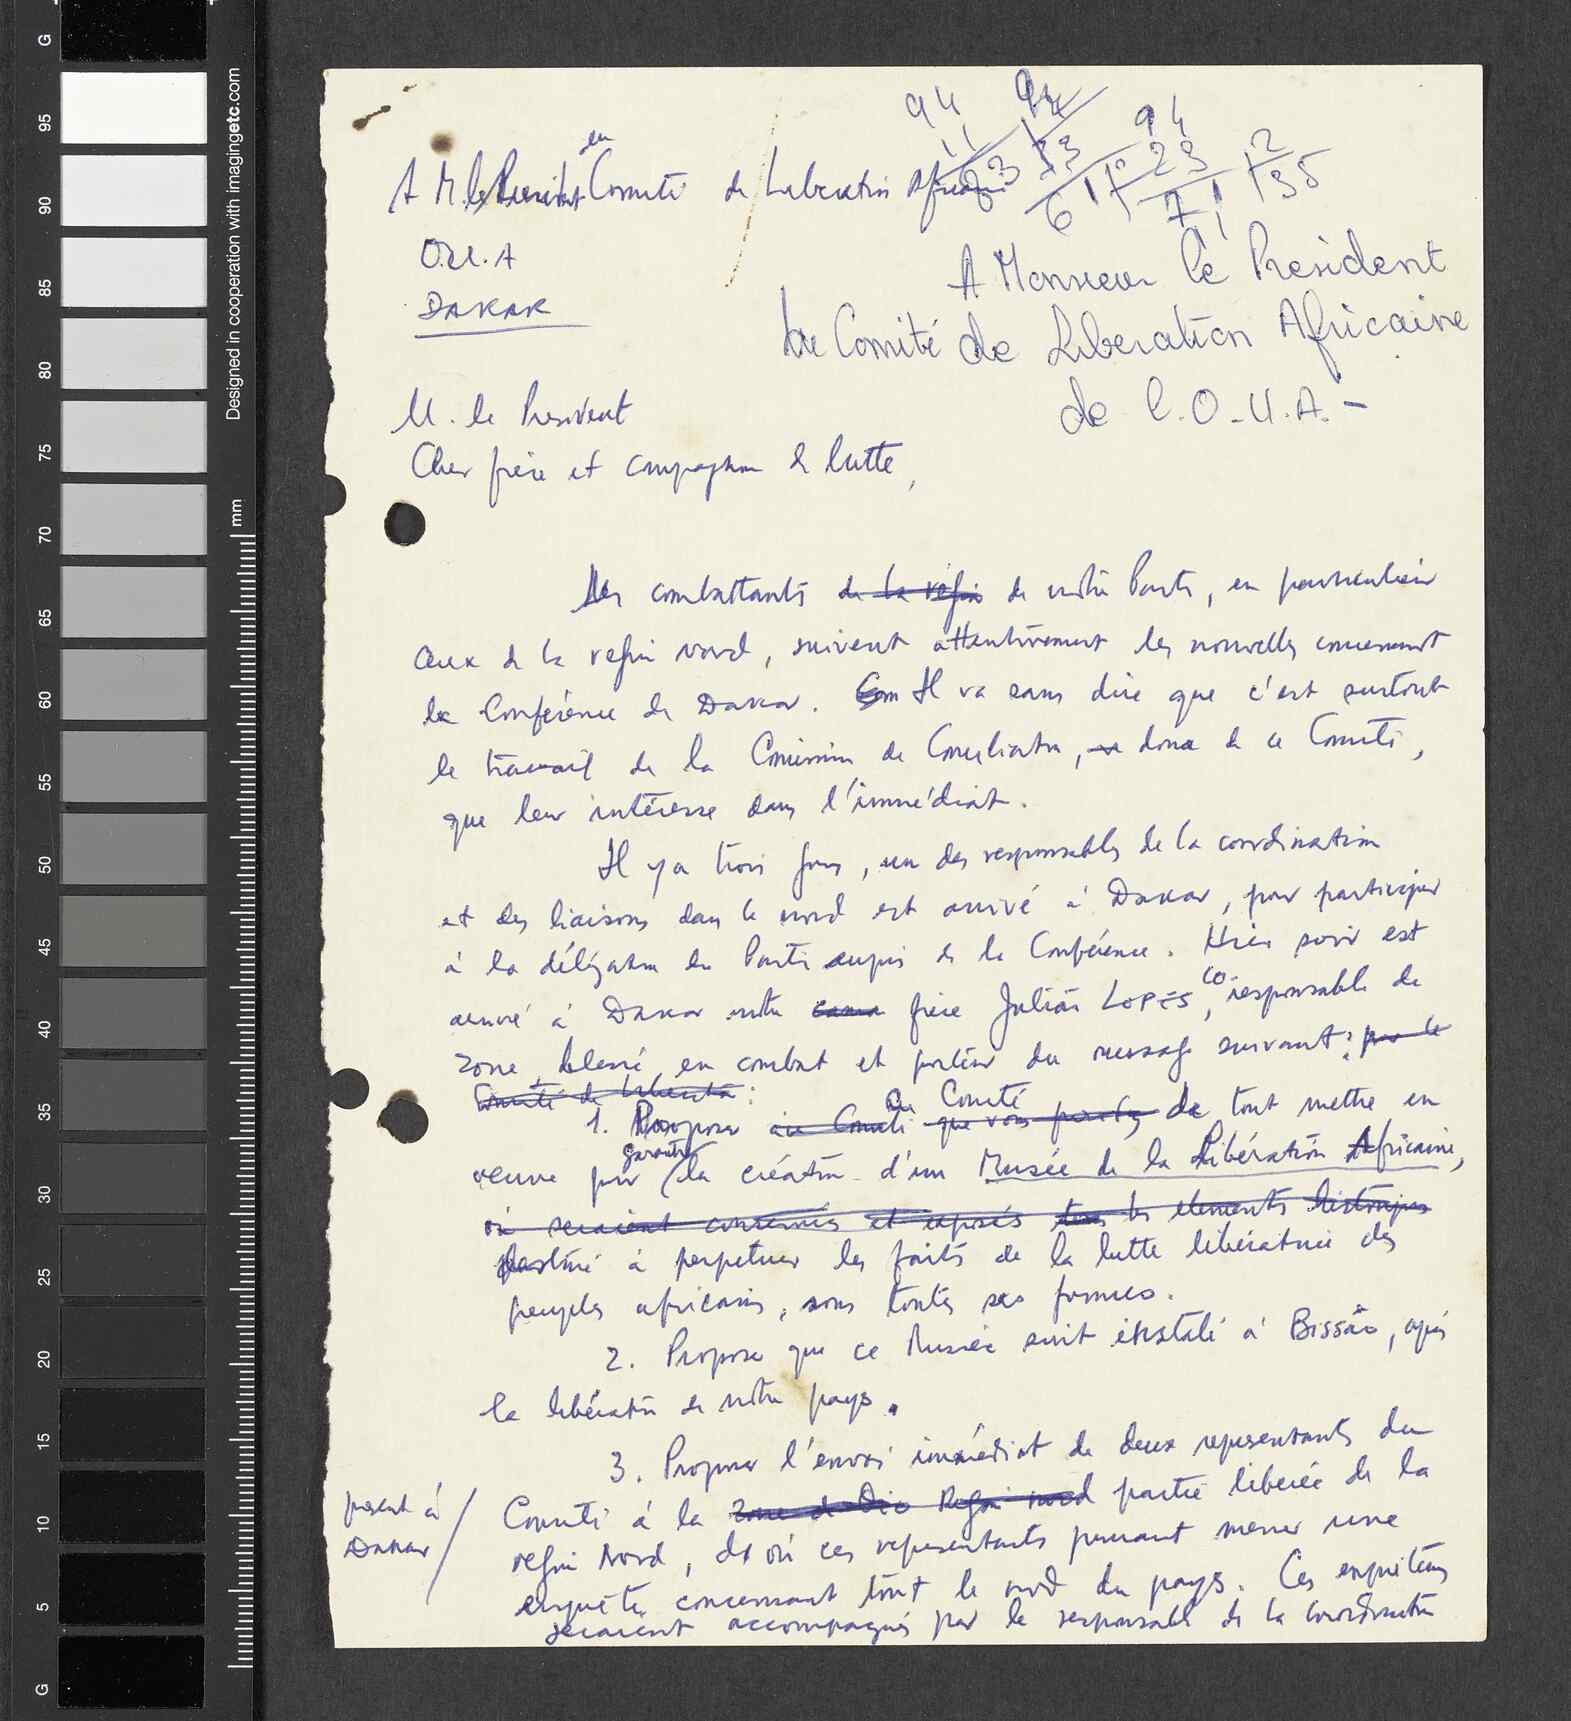 94 94 94
11 33 23 12
83 61 71 35
A M. le Président du Comité de Libération Africaine
O.U.A
DAKAR
A Monsieur le Président
du Comité de Libération Africaine
de l'O.U.A.-
M. le Président
Cher frère et compagnon de lutte,
Les combattants de la région de notre Parti, en particulier
ceux de la région nord, suivent attentivement les nouvelles concernant
la Conférence de Dakar. Com Il va sans dire que c'est surtout
le travail de la Commission de Conciliation, donc de ce Comité,
que leur intéresse dans l'immédiat.
Il y a trois jours, un des responsables de la coordination
et des liaisons dans le nord est arrivé à Dakar, pour participer
à la délégation du Parti auprès de la Conférence. Hier soir est
arrivé à Dakar notre cama frère Julião LOPES, co-responsable de
zone, blessé en combat et porteur du message suivant: pour le
Comité de Libération:
1. Proposer au Comité que vous présidez au Comité de tout mettre en
oeuvre pour garantir la création d'un Musée de la Libération Africaine,
où seraient conservés et exposés tous les elements historiques
destiné à perpetuer les faits de la lutte libératrice des
peuples africains, sous toutes ses formes.
2. Proposer que ce Musée soit installé à Bissão, après
la libération de notre pays.
3. Proposer l'envoi immédiat de deux representants du
présent à
Dakar
Comité à la Zone de Région nord partie liberée de la
région Nord, d'où ces representants peuvent mener une
enquête concernant tout le nord du pays. Ces enquêteurs
seraient accompagnés par le responsable de la coordination
Designed in cooperation with imagingetc.com
mm
G
95
90
85
80
75
70
65
60
55
50
45
40
35
30
25
20
15
10
5
G